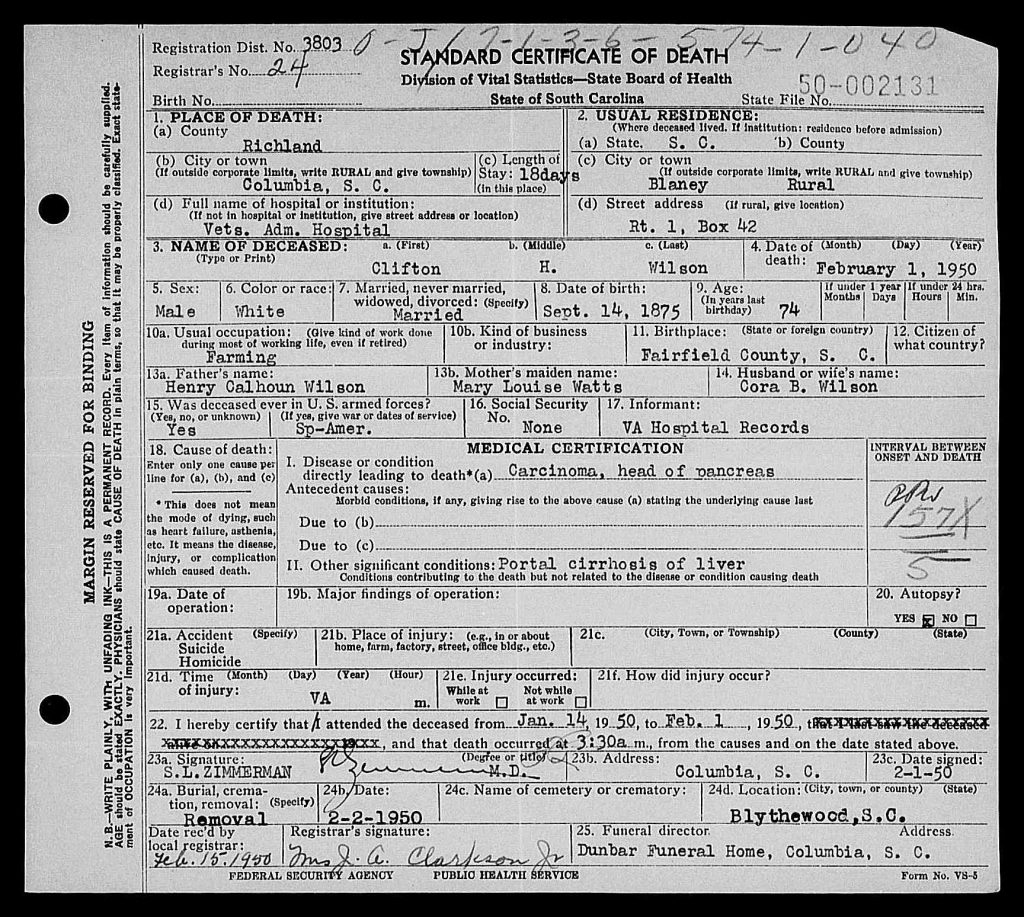 Registration Dist. No. 3803 0-J17-1-3-6-574-1-040
STANDARD CERTIFICATE OF DEATH
Registrar's No. 24
Division of Vital Statistics—State Board of Health
50-002131
Birth No.
State of South Carolina
State File No.
1. PLACE OF DEATH:
(a) County
Richland
2. USUAL RESIDENCE:
(Where deceased lived. If institution: residence before admission)
(a) State. S. C. (b) County
(b) City or town
(If outside corporate limits, write RURAL and give township)
Columbia, S. C.
(c) Length of
Stay: 18days
(in this place)
(c) City or town
(If outside corporate limits, write RURAL and give township)
Blaney Rural
(d) Full name of hospital or institution:
(If not in hospital or institution, give street address or location)
Vets. Adm. Hospital
(d) Street address (If rural, give location)
Rt. 1, Box 42
3. NAME OF DECEASED: a. (First) b. (Middle) c. (Last)
(Type or Print)
Clifton H. Wilson
4. Date of (Month) (Day) (Year)
death: February 1, 1950
5. Sex:
Male
6. Color or race:
White
7. Married, never married,
widowed, divorced: (Specify)
Married
8. Date of birth:
Sept. 14, 1875
9. Age:
(In years last
birthday) 74
If under 1 year
Months Days
If under 24 hrs.
Hours Min.
10a. Usual occupation: (Give kind of work done
during most of working life, even if retired)
Farming
10b. Kind of business
or industry:
11. Birthplace: (State or foreign country)
Fairfield County, S. C.
12. Citizen of
what country?
13a. Father's name:
Henry Calhoun Wilson
13b. Mother's maiden name:
Mary Louise Watts
14. Husband or wife's name:
Cora B. Wilson
15. Was deceased ever in U. S. armed forces?
(Yes, no, or unknown) (If yes, give war or dates of service)
Yes Sp-Amer.
16. Social Security
No.
None
17. Informant:
VA Hospital Records
18. Cause of death:
Enter only one cause per
line for (a), (b), and (c)
* This does not mean
the mode of dying, such
as heart failure, asthenia,
etc. It means the disease,
injury, or complication
which caused death.
MEDICAL CERTIFICATION
I. Disease or condition
directly leading to death*(a) Carcinoma, head of pancreas
Antecedent causes:
Morbid conditions, if any, giving rise to the above cause (a) stating the underlying cause last
Due to (b)
Due to (c)
II. Other significant conditions: Portal cirrhosis of liver
Conditions contributing to the death but not related to the disease or condition causing death
INTERVAL BETWEEN
ONSET AND DEATH
157X
5
19a. Date of
operation:
19b. Major findings of operation:
20. Autopsy?
YES x NO
21a. Accident (Specify)
Suicide
Homicide
21b. Place of injury: (e.g., in or about
home, farm, factory, street, office bldg., etc.)
21c. (City, Town, or Township) (County) (State)
21d. Time (Month) (Day) (Year) (Hour)
of injury: VA m.
21e. Injury occurred:
While at Not while
work at work
21f. How did injury occur?
22. I hereby certify that I attended the deceased from Jan. 14, 1950, to Feb. 1, 1950, that I last saw the deceased
alive on 19, and that death occurred at 3:30a m., from the causes and on the date stated above.
23a. Signature: (Degree or title)
S.L.ZIMMERMAN M.D.
23b. Address:
Columbia, S. C.
23c. Date signed:
2-1-50
24a. Burial, crema-
tion, removal: (Specify)
Removal
24b. Date:
2-2-1950
24c. Name of cemetery or crematory:
24d. Location: (City, town, or county) (State)
Blythewood,S.C.
Date rec'd by
local registrar:
Feb. 15, 1950
Registrar's signature:
Mrs J. A. Clarkson Jr
25. Funeral director Address
Dunbar Funeral Home, Columbia, S. C.
FEDERAL SECURITY AGENCY PUBLIC HEALTH SERVICE Form No. VS-5
MARGIN RESERVED FOR BINDING
N.B.—WRITE PLAINLY, WITH UNFADING INK—THIS IS A PERMANENT RECORD. Every item of information should be carefully supplied.
AGE should be stated EXACTLY. PHYSICIANS should state CAUSE OF DEATH in plain terms, so that it may be properly classified. Exact state-
ment of OCCUPATION is very important.